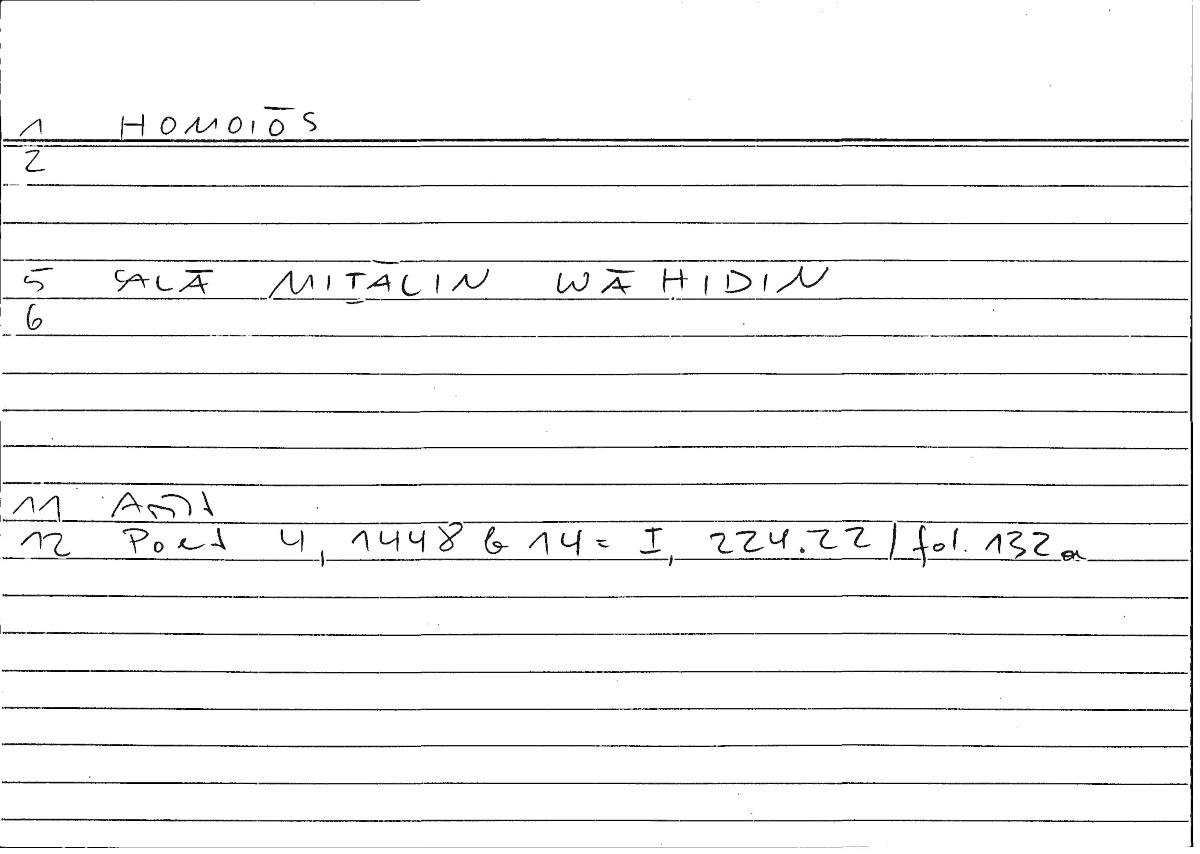 1 HOMOIŌS
2
5 ʿALĀ MIṮĀLIN WĀḤIDIN
6
11
12 Poet 4, 1448 b 14 = I, 224.22 / fol. 132a